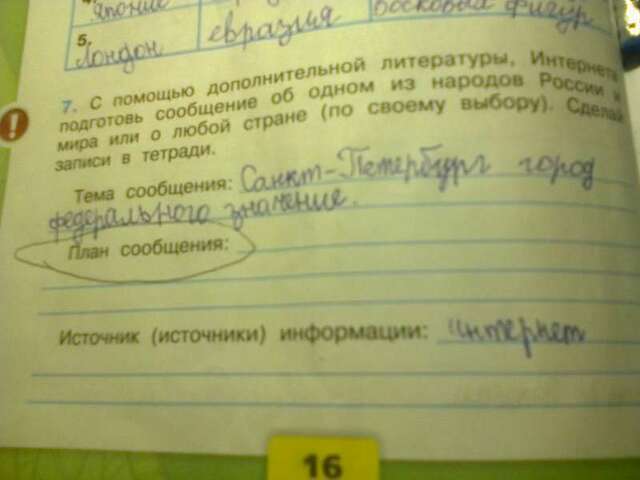 Японие восковых фигур
5.
Лондон евразия
7. С помощью дополнительной литературы, Интернета
подготовь сообщение об одном из народов России и
мира или о любой стране (по своему выбору). Сделай
записи в тетради.
Тема сообщения: Санкт-Петербург город
федерального значение.
План сообщения:
Источник (источники) информации: интернет
16